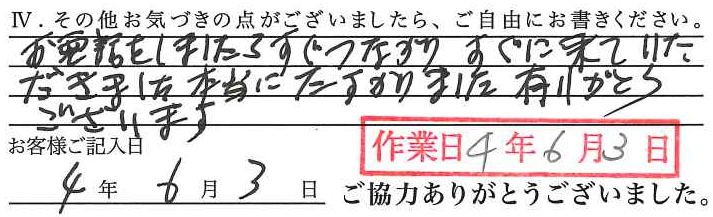 Ⅳ．その他お気づきの点がございましたら、ご自由にお書きください。
お電話をしましたらすぐつながり すぐに来ていただきました 本当にたすかりました 有りがとう
ございます
お客様ご記入日
作業日4年6月3日
4年6月3日
ご協力ありがとうございました。